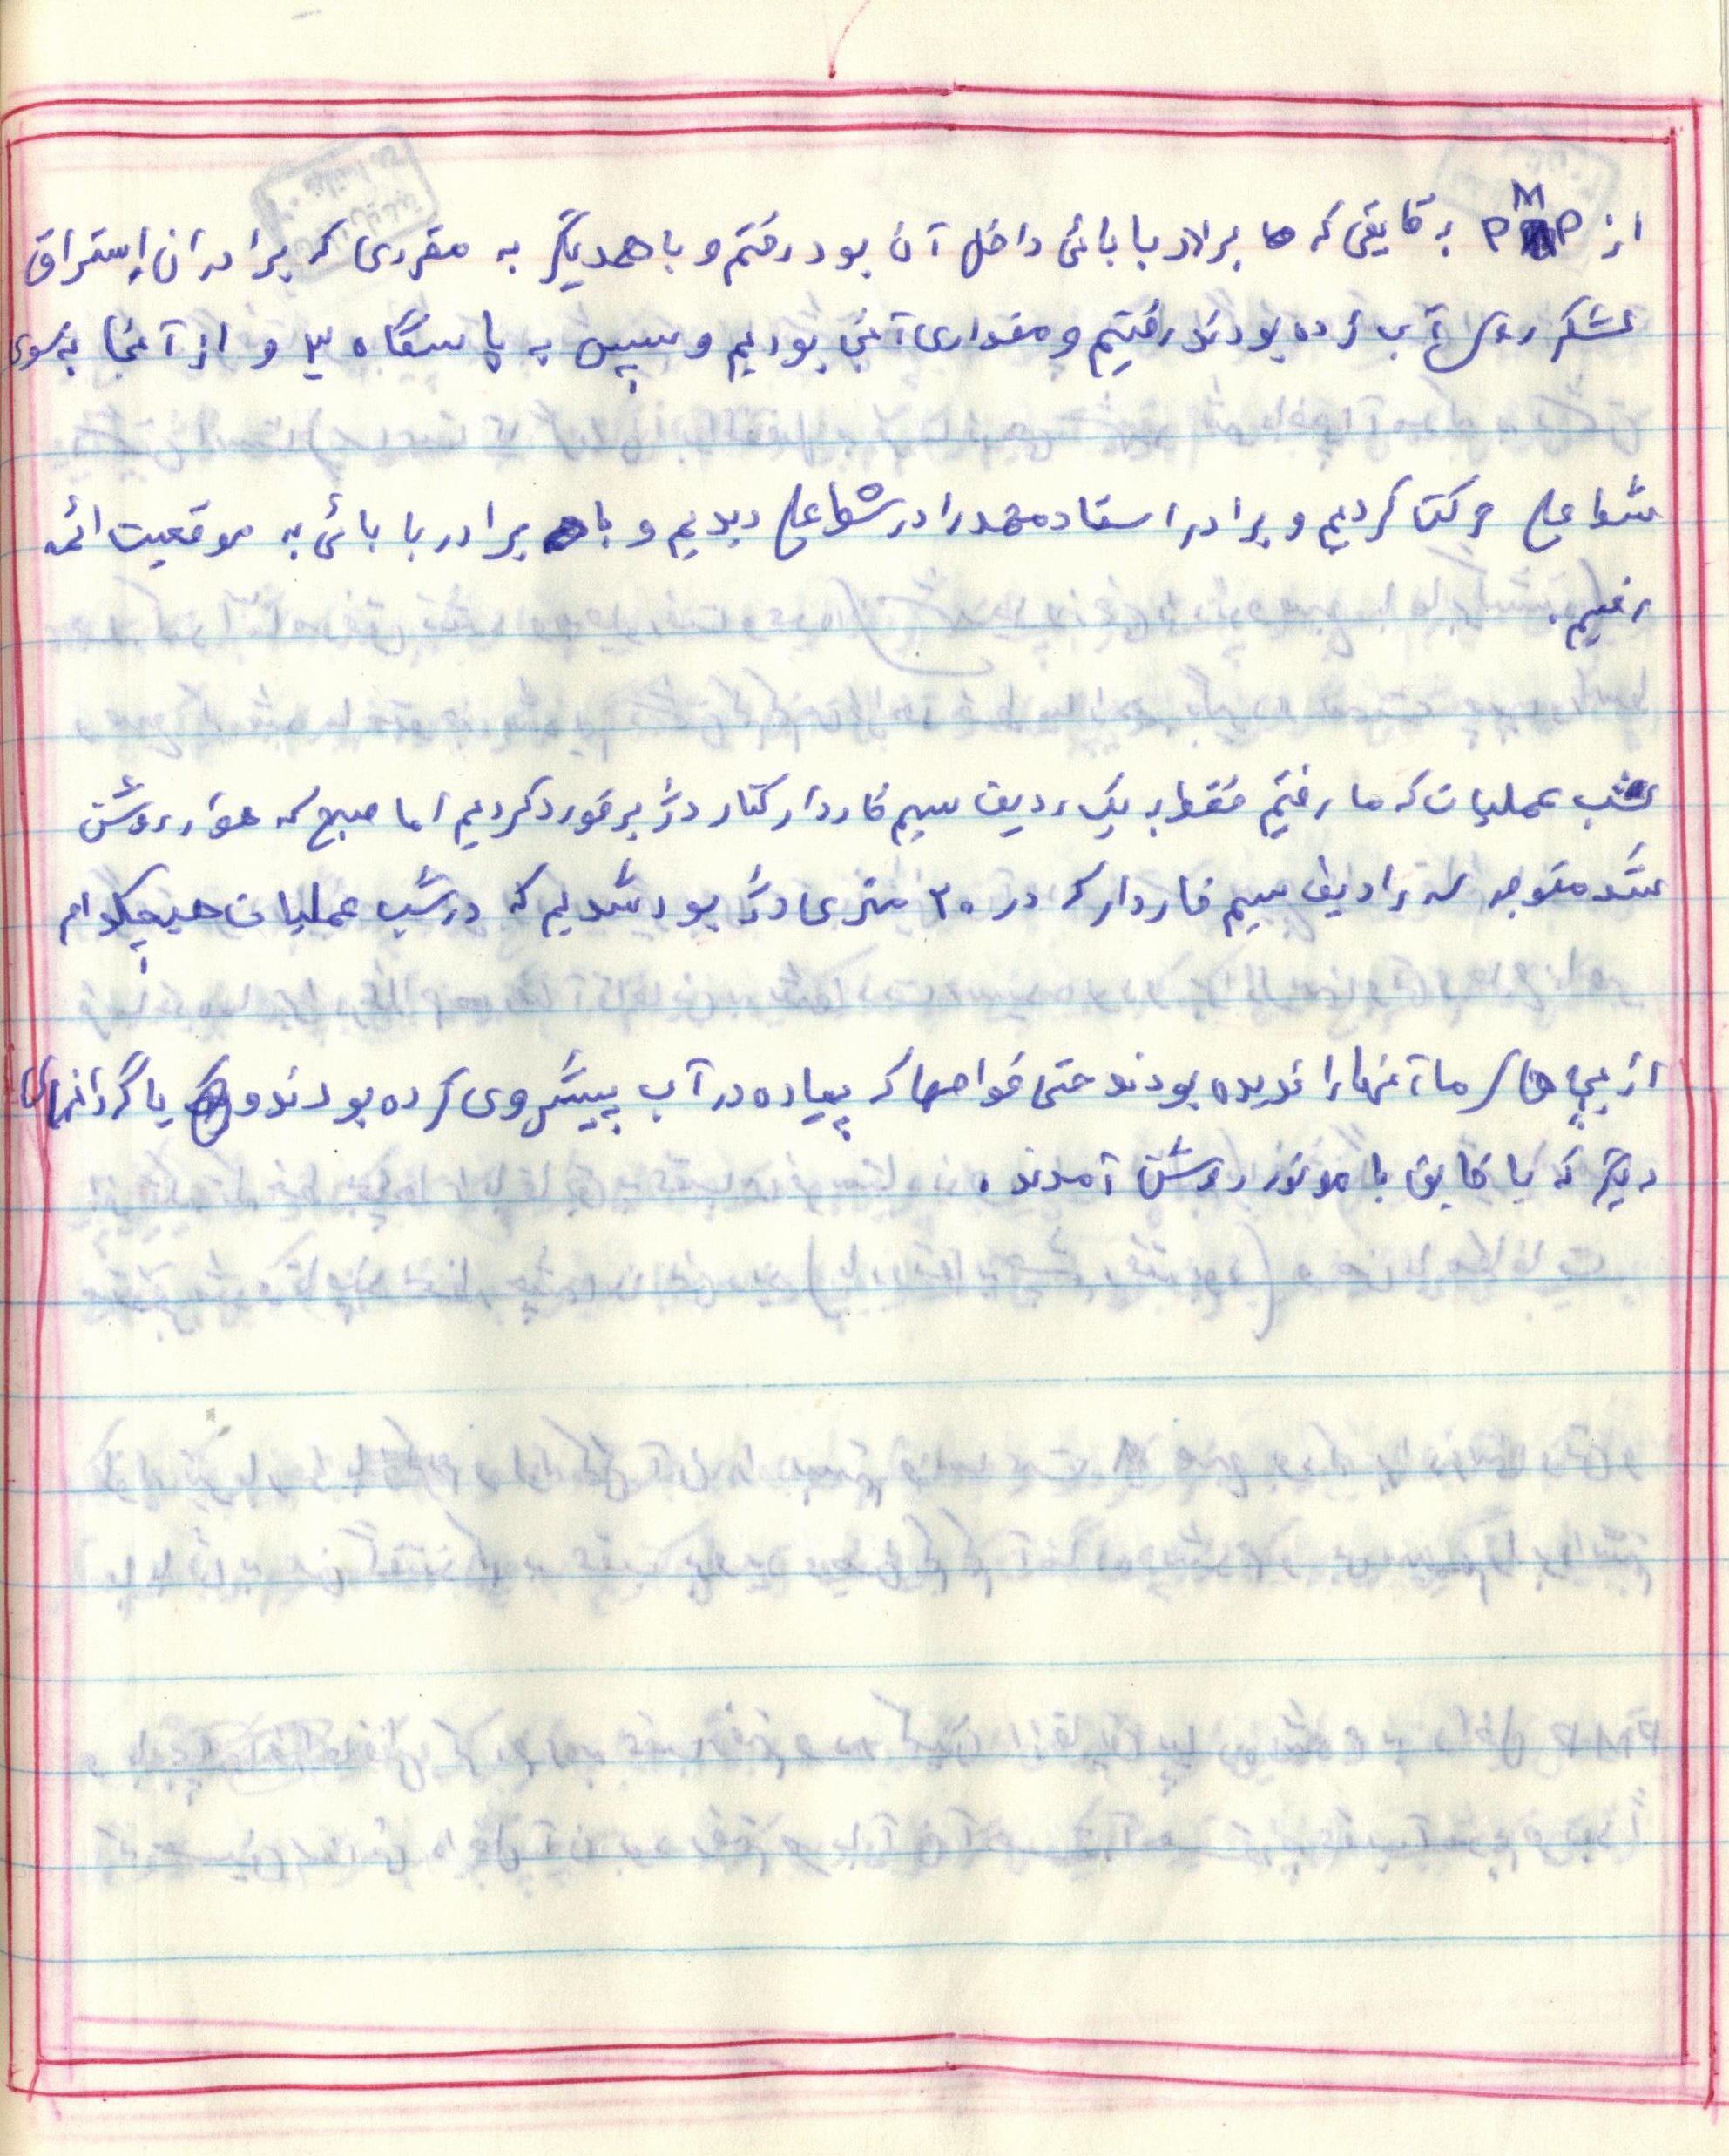 از PMP به قایقی که برادر بابائی داخل آن بود رفتم و با همدیگر به مقرری که برادران استراق
لشکر روی آب زده بودند رفتیم و مقداری آنجا بودیم و سپس به پاسگاه و از آنجا به سوی
شط علی حرکت کردیم و برادر استاد محمد را در شط علی دیدیم و با برادر بابائی به موقعیت ائمه
رفتیم.
شب عملیات که ما رفتیم فقط به یک ردیف سیم خاردار کنار دژ برخورد کردیم اما صبح که هوا روشن
شد متوجه سه ردیف سیم خاردار که در ۲۰ متری دژ بود شدیم که در شب عملیات هیچکدام
از بچه های ما آنها را ندیده بودند حتی غواصها که پیاده در آب پیشروی کرده بودند و یا گردانهای
دیگر که با قایق با موتور روشن آمدند.